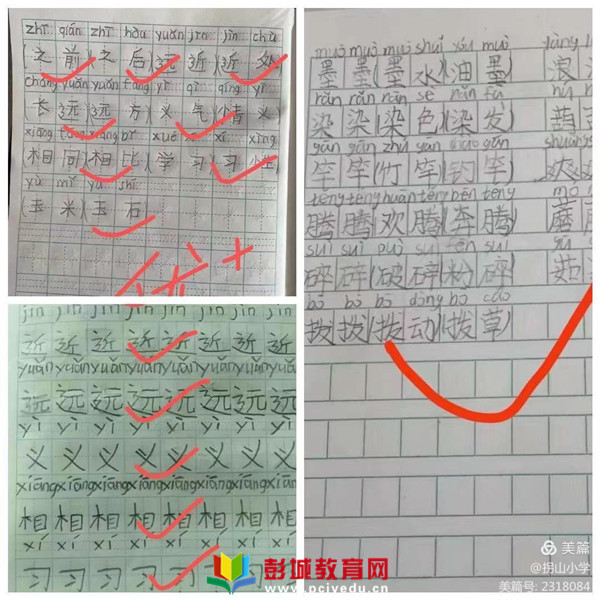 zhī qián zhī hòu yuǎn jìn jìn chù
(之前)(之后)(远近)(近处
cháng yuǎn yuǎn fāng yì qì qíng yì
(长远)(远方)(义气)(情义
xiāng tóng xiāng bǐ xué xí xí xìng
(相同)(相比)(学习)(习性
yù mǐ yù shí
(玉米)(玉石)
优+
jìn jìn jìn jìn jìn jìn
近近近近近近
yuǎn yuǎn yuǎn yuǎn yuǎn yuǎn
远远远远远远
yì yì yì yì yì yì
义义义义义义
xiāng xiāng xiāng xiāng xiāng xiāng
相相相相相相
xí xí xí xí xí xí
习习习习习习
mò mò mò shuǐ yóu mò
墨墨(墨水)(油墨) 浪
rǎn rǎn rǎn sè rǎn fà
染染(染色)(染发) 葫
gān gān zhú gān diào gān
竿竿(竹竿)(钓竿)
téng téng huān téng bēn téng
腾腾(欢腾)(奔腾) 蘑
suì suì pò suì fěn suì
碎碎(破碎)(粉碎) 茹
bō bō bō dòng bō cǎo
拨拨(拨动)(拨草)
美篇
@拐山小学
美篇号: 2318084
彭城教育网
www.pcjyedu.com